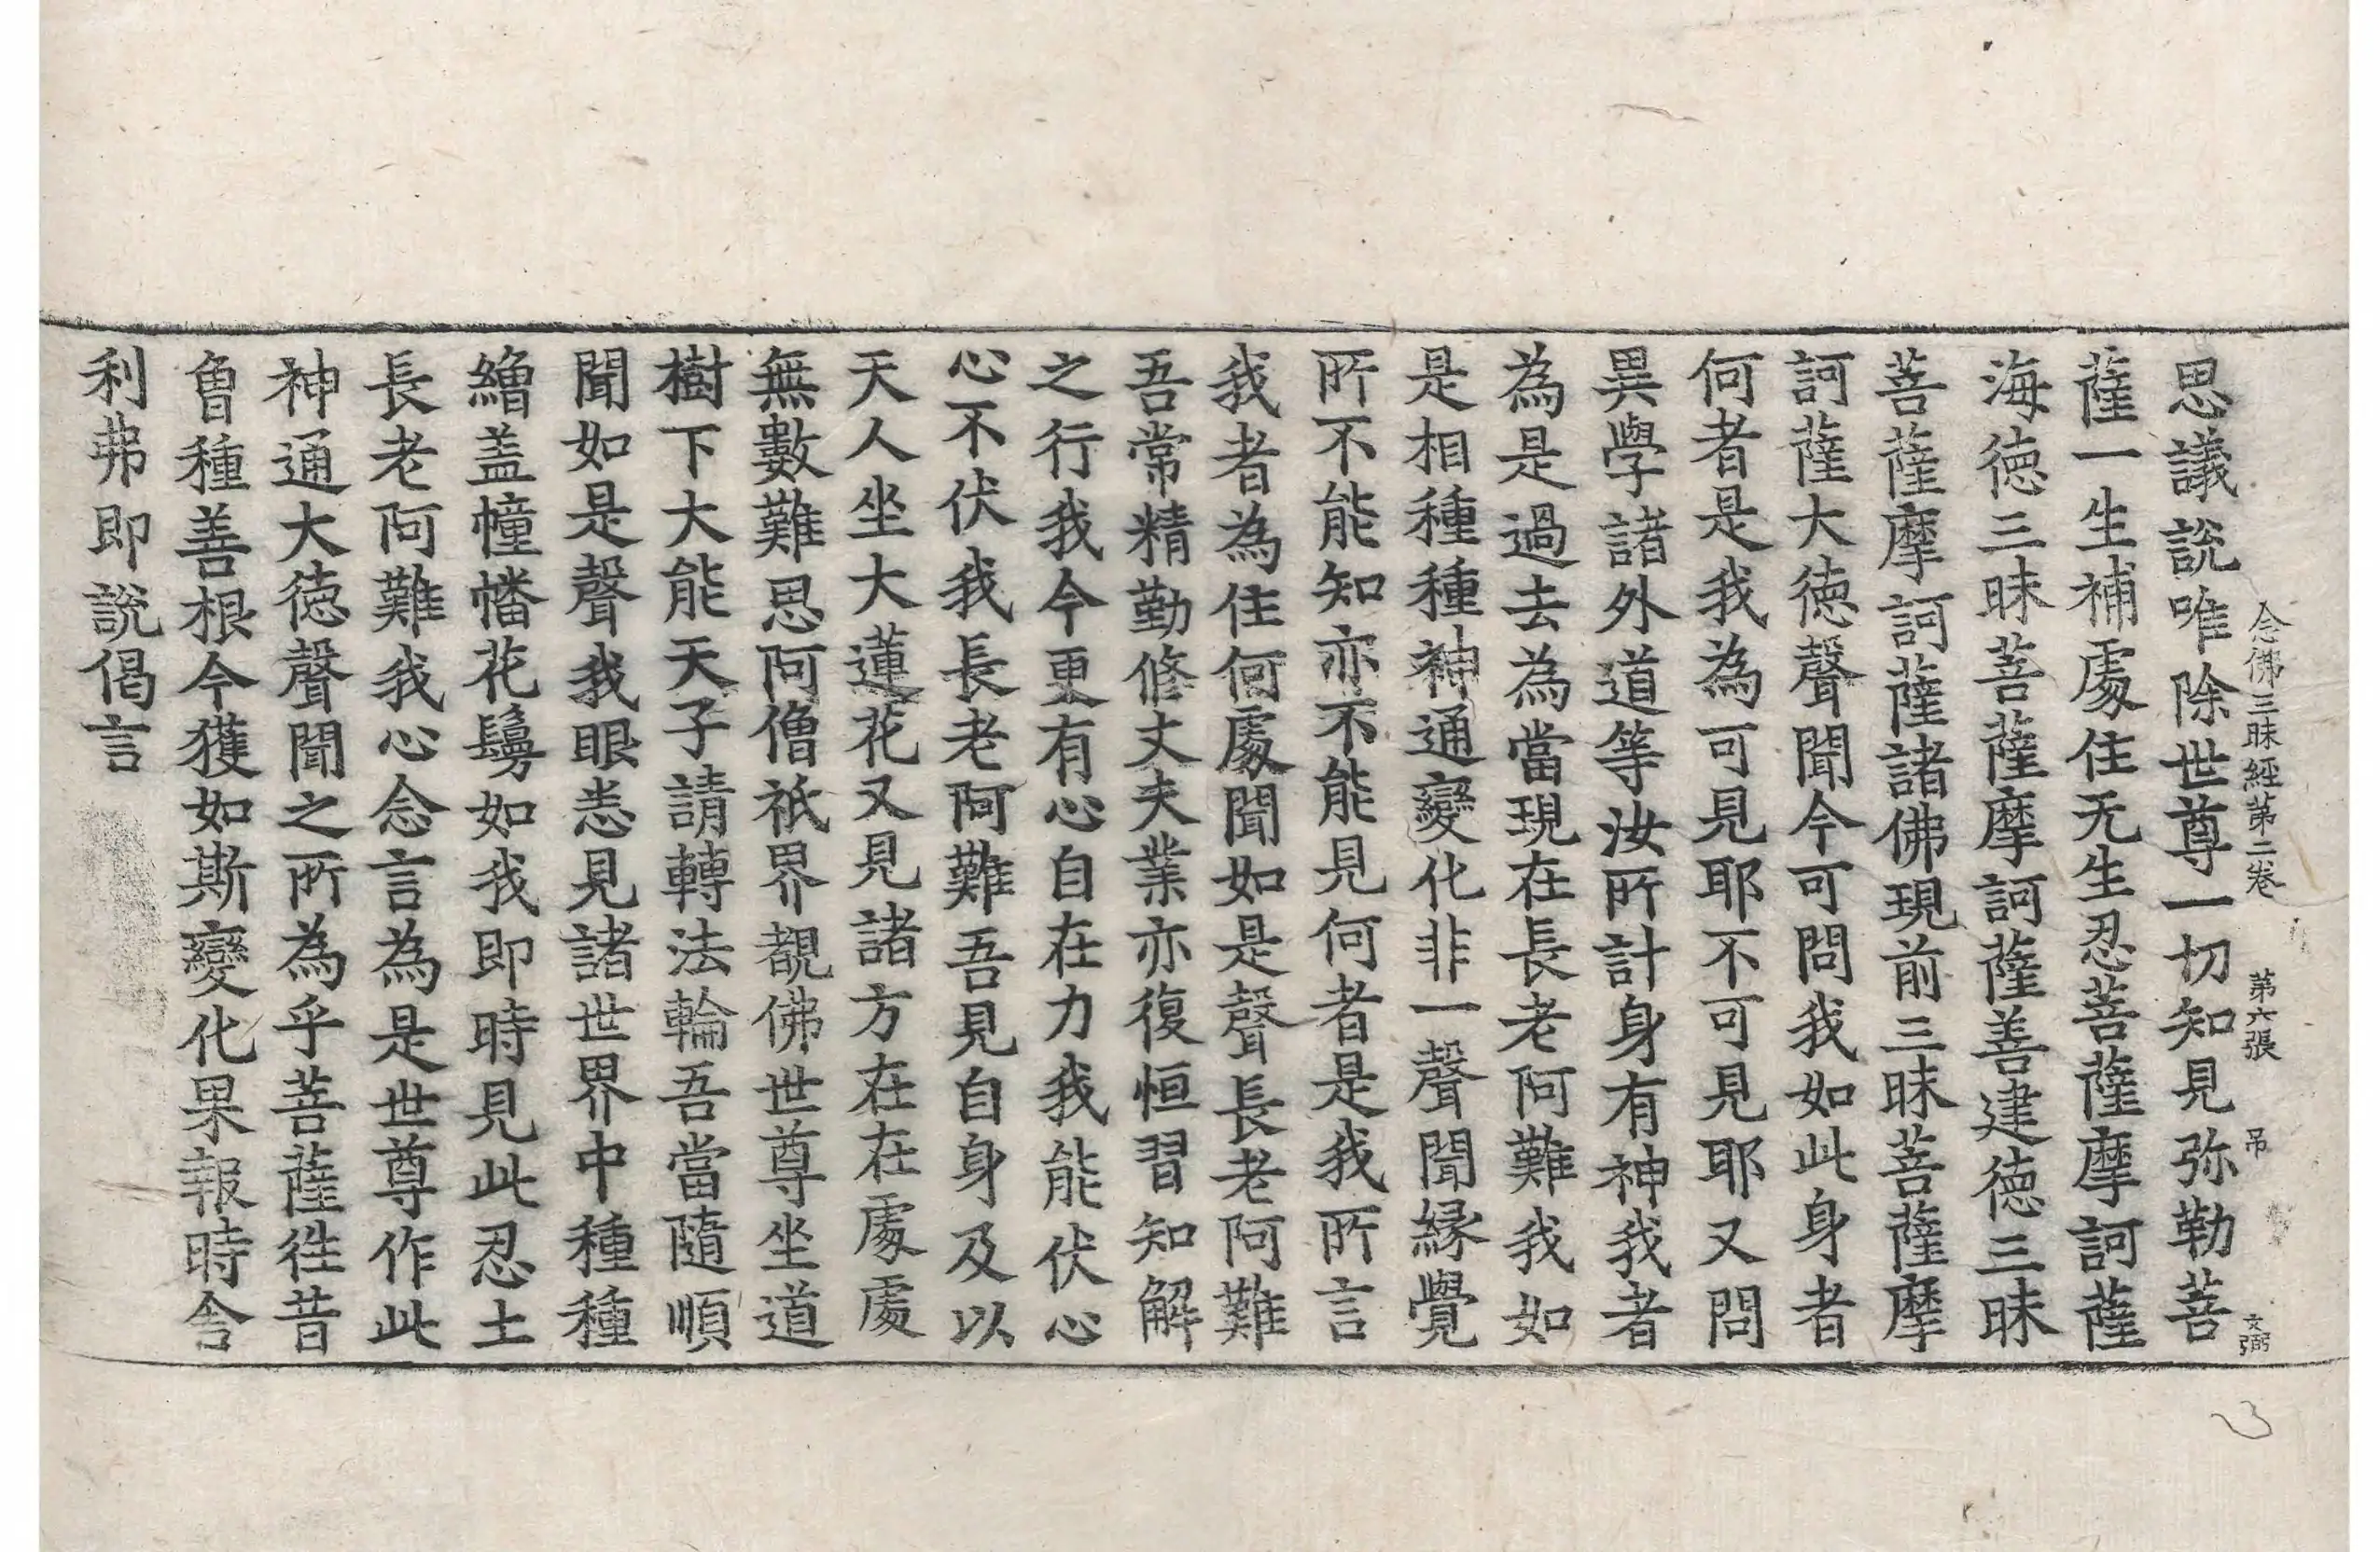 念佛三昧經第二卷 第六張 吊 文弼
思議說唯除世尊一切知見弥勒菩
薩一生補處住无生忍菩薩摩訶薩
海德三昧菩薩摩訶薩善建德三昧
菩薩摩訶薩諸佛現前三昧菩薩摩
訶薩大德聲聞今可問我如此身者
何者是我為可見耶不可見耶又問
異學諸外道等汝所計身有神我者
為是過去為當現在長老阿難我如
是相種種神通變化非一聲聞緣覺
所不能知亦不能見何者是我所言
我者為住何處聞如是聲長老阿難
吾常精勤修丈夫業亦復恒習知解
之行我今更有心自在力我能伏心
心不伏我長老阿難吾見自身及以
天人坐大蓮花又見諸方在在處處
無數難思阿僧祇界覩佛世尊坐道
樹下大能天子請轉法輪吾當隨順
聞如是聲我眼悉見諸世界中種種
繒盖幢幡花鬘如我即時見此忍土
長老阿難我心念言為是世尊作此
神通大德聲聞之所為乎菩薩徃昔
曾種善根今獲如斯變化果報時舍
利弗即說偈言